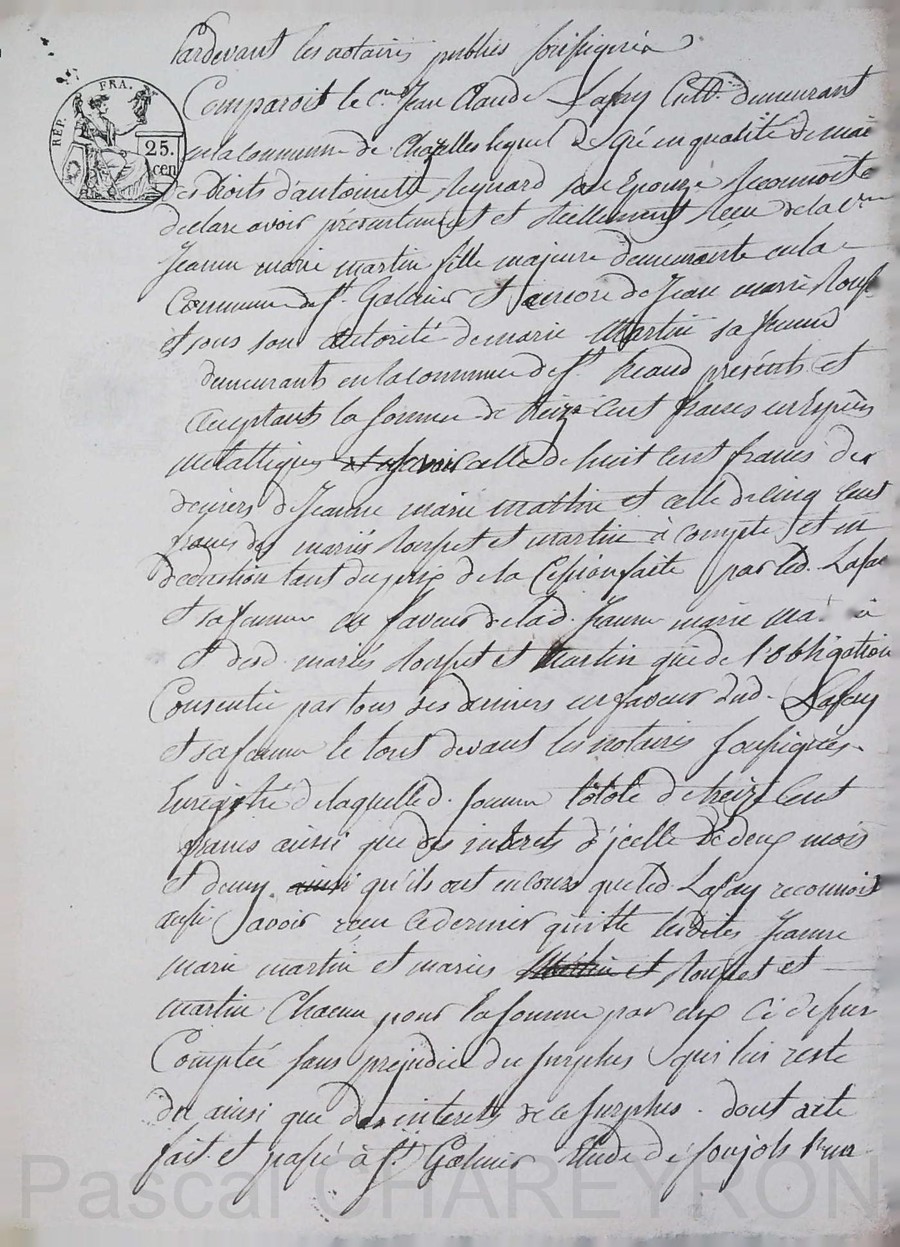 Pardevant les notaires publics soussignés
RÉP. FRA.
25.
cen
Comparoit le c.en Jean Claude Lafay Cult. demeurant
en la commune de Chazelles lequel de gré en qualité de mai
des droits d'antoinette Reynard son Epouze Reconnoit &
declare avoir présentement et réellement reçu de la C.enne
Jeanne marie martin fille majeure demeurante en la
Commune de s.t Galmier et encore de Jean marie
et sous son autorité de marie Martin sa femme
demeurants en la commune de s.t heand présents et
acceptants la somme de treize cent francs en Espèces
metalliques et a savoir celle de huit cent francs des
deniers de Jeanne marie martin et celle de cinq cent
francs des mariés et martin à compte et en
deduction tant du prix de la Cession faite par led. Lafay
et sa femme en faveur de lad. Jeanne marie ma
et desd. mariés et Martin que de l'obligation
Consentie par tous ces derniers en faveur dud. Lafay
et sa femme le tout devant les notaires soussignés
Enregistré de laquelle d. somme totale de treize cent
francs ainsi que des interets d'jcelle de deux mois
et demy ainsi qu'ils ont encourus que led. Lafay reconnoit
aussi avoir reçu ce dernier quitte lesdites Jeanne
marie martin et mariés et et
martin Chacun pour la somme par eux ci dessus
Comptée sans prejudice du surplus qui lui reste
du ainsi que des interets de ce surplus. dont acte
fait et passé à s.t Galmier Etude de l'un
Pascal CHAREYRON